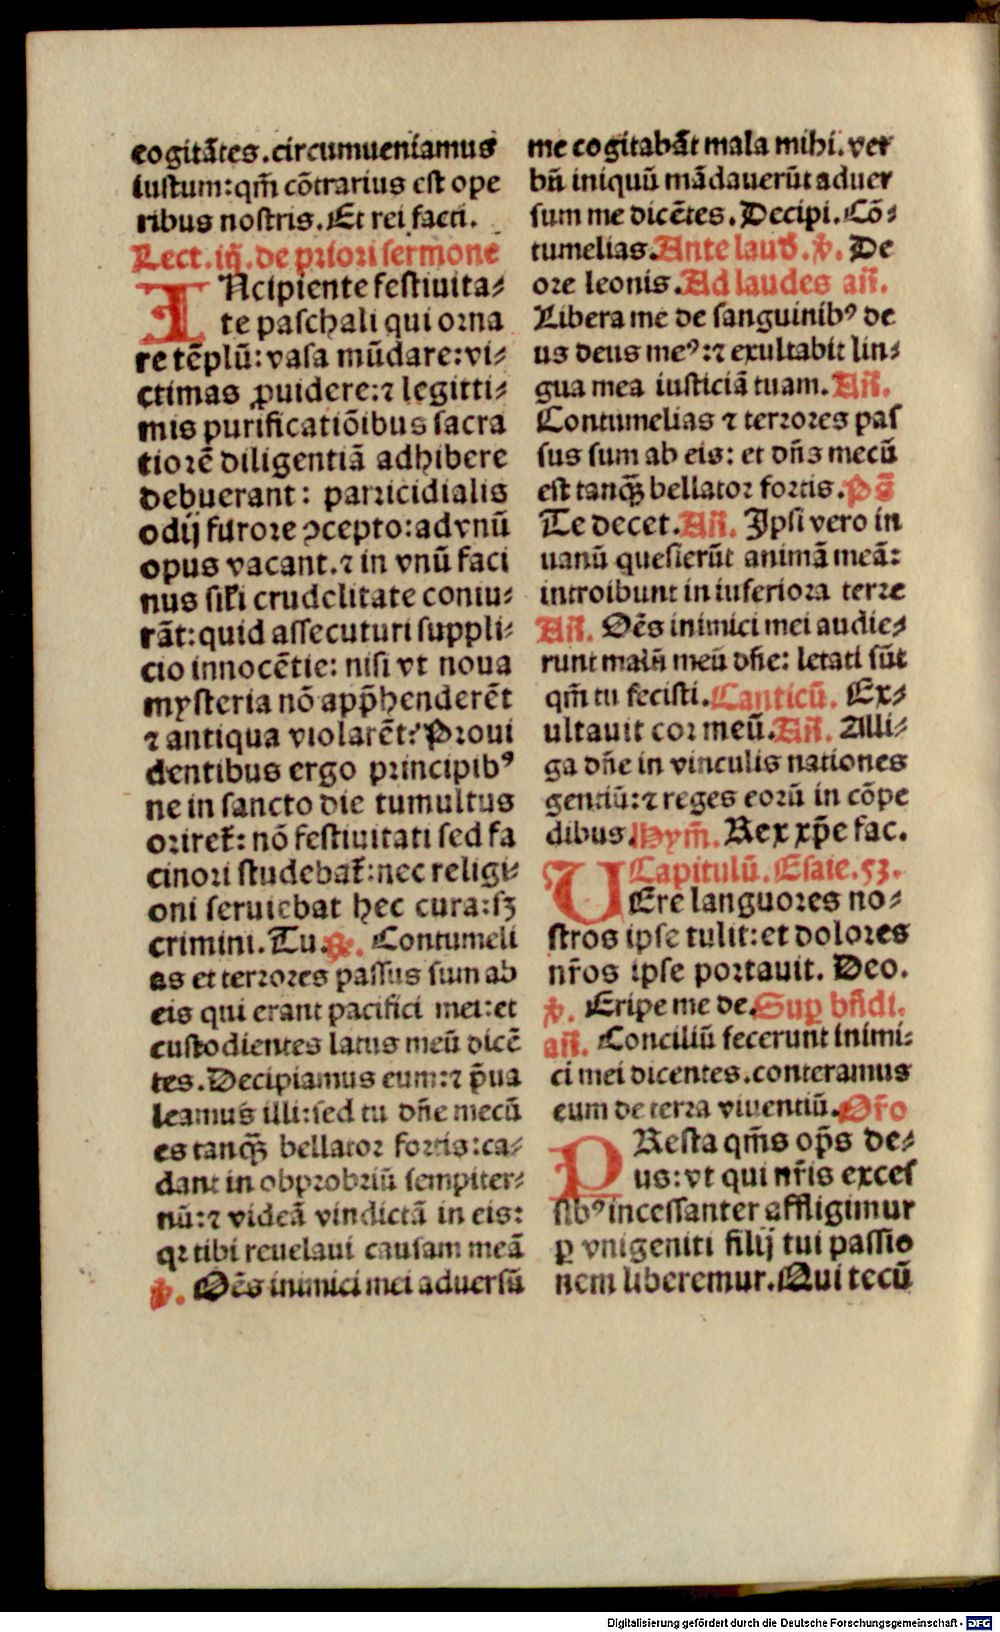 cogitãtes.circumueniamus
iustum:qm̃ cõtrarius est ope
ribus nostris. Et rei facti.
Lect. iij. de priori sermone
INcipiente festiuita⸗
te paschali qui orna
re tẽplũ: vasa mũdare: vi⸗
ctimas ꝓuidere: ⁊ legitti⸗
mis purificatiõibus sacra
tiorẽ diligentiã adhibere
debuerant: parricidialis
odij furore ↄcepto: ad vnũ
opus vacant. ⁊ in vnũ faci
nus sil̃i crudelitate coniu⸗
rãt: quid assecuturi suppli⸗
cio innocẽtie: nisi vt noua
mysteria nõ app̃henderẽt
⁊ antiqua violarẽt? Proui
dentibus ergo principibꝰ
ne in sancto die tumultus
oriret̃: nõ festiuitati sed fa
cinori studebat̃: nec religi⸗
oni seruiebat hec cura: sꝫ
crimini. Tu. ℟. Contumeli
as et terrores passus sum ab
eis qui erant pacifici mei: et
custodientes latus meũ dicẽ
tes. Decipiamus eum: ⁊ p̃ua
leamus illi: sed tu dñe mecũ
es tanq̃ꝫ bellator fortis: ca⸗
dant in obprobriũ sempiter⸗
nũ: ⁊ videã vindictã in eis:
qꝛ tibi reuelaui causam meã
℣. Oẽs inimici mei aduersũ
me cogitabãt mala mihi. ver
bũ iniquũ mãdauerũt aduer
sum me dicẽtes. Decipi. Cõ⸗
tumelias. Ante laud̃. ℣. De
ore leonis. Ad laudes añ.
Libera me de sanguinibꝰ de
us deus meꝰ: ⁊ exultabit lin⸗
gua mea iusticiã tuam. Añ.
Contumelias ⁊ terrores pas
sus sum ab eis: et dñs mecũ
est tanq̃ꝫ bellator fortis. Ps̃
Te decet. Añ. Ipsi vero in
uanũ quesierũt animã meã:
introibunt in inferiora terre
Añ. Oẽs inimici mei audie⸗
runt malũ meũ dñe: letati sũt
qm̃ tu fecisti. Canticũ. Ex⸗
ultauit cor meũ. Añ. Alli⸗
ga dñe in vinculis nationes
gentiũ: ⁊ reges eorũ in cõpe
dibus. Hym̃. Rex xp̃e fac.
Capitulũ. Esaie. 53.
UEre languores no⸗
stros ipse tulit: et dolores
nr̃os ipse portauit. Deo.
℣. Eripe me de. Suꝑ bñdi.
añ. Conciliũ fecerunt inimi⸗
ci mei dicentes. conteramus
eum de terra viuentiũ. Or̃o
PResta qm̃s op̃s de⸗
us: vt qui nr̃is exces
sibꝰ incessanter affligimur
ꝑ vnigeniti filij tui passio
nem liberemur. Qui tecũ
Digitalisierung gefördert durch die Deutsche Forschungsgemeinschaft - DFG